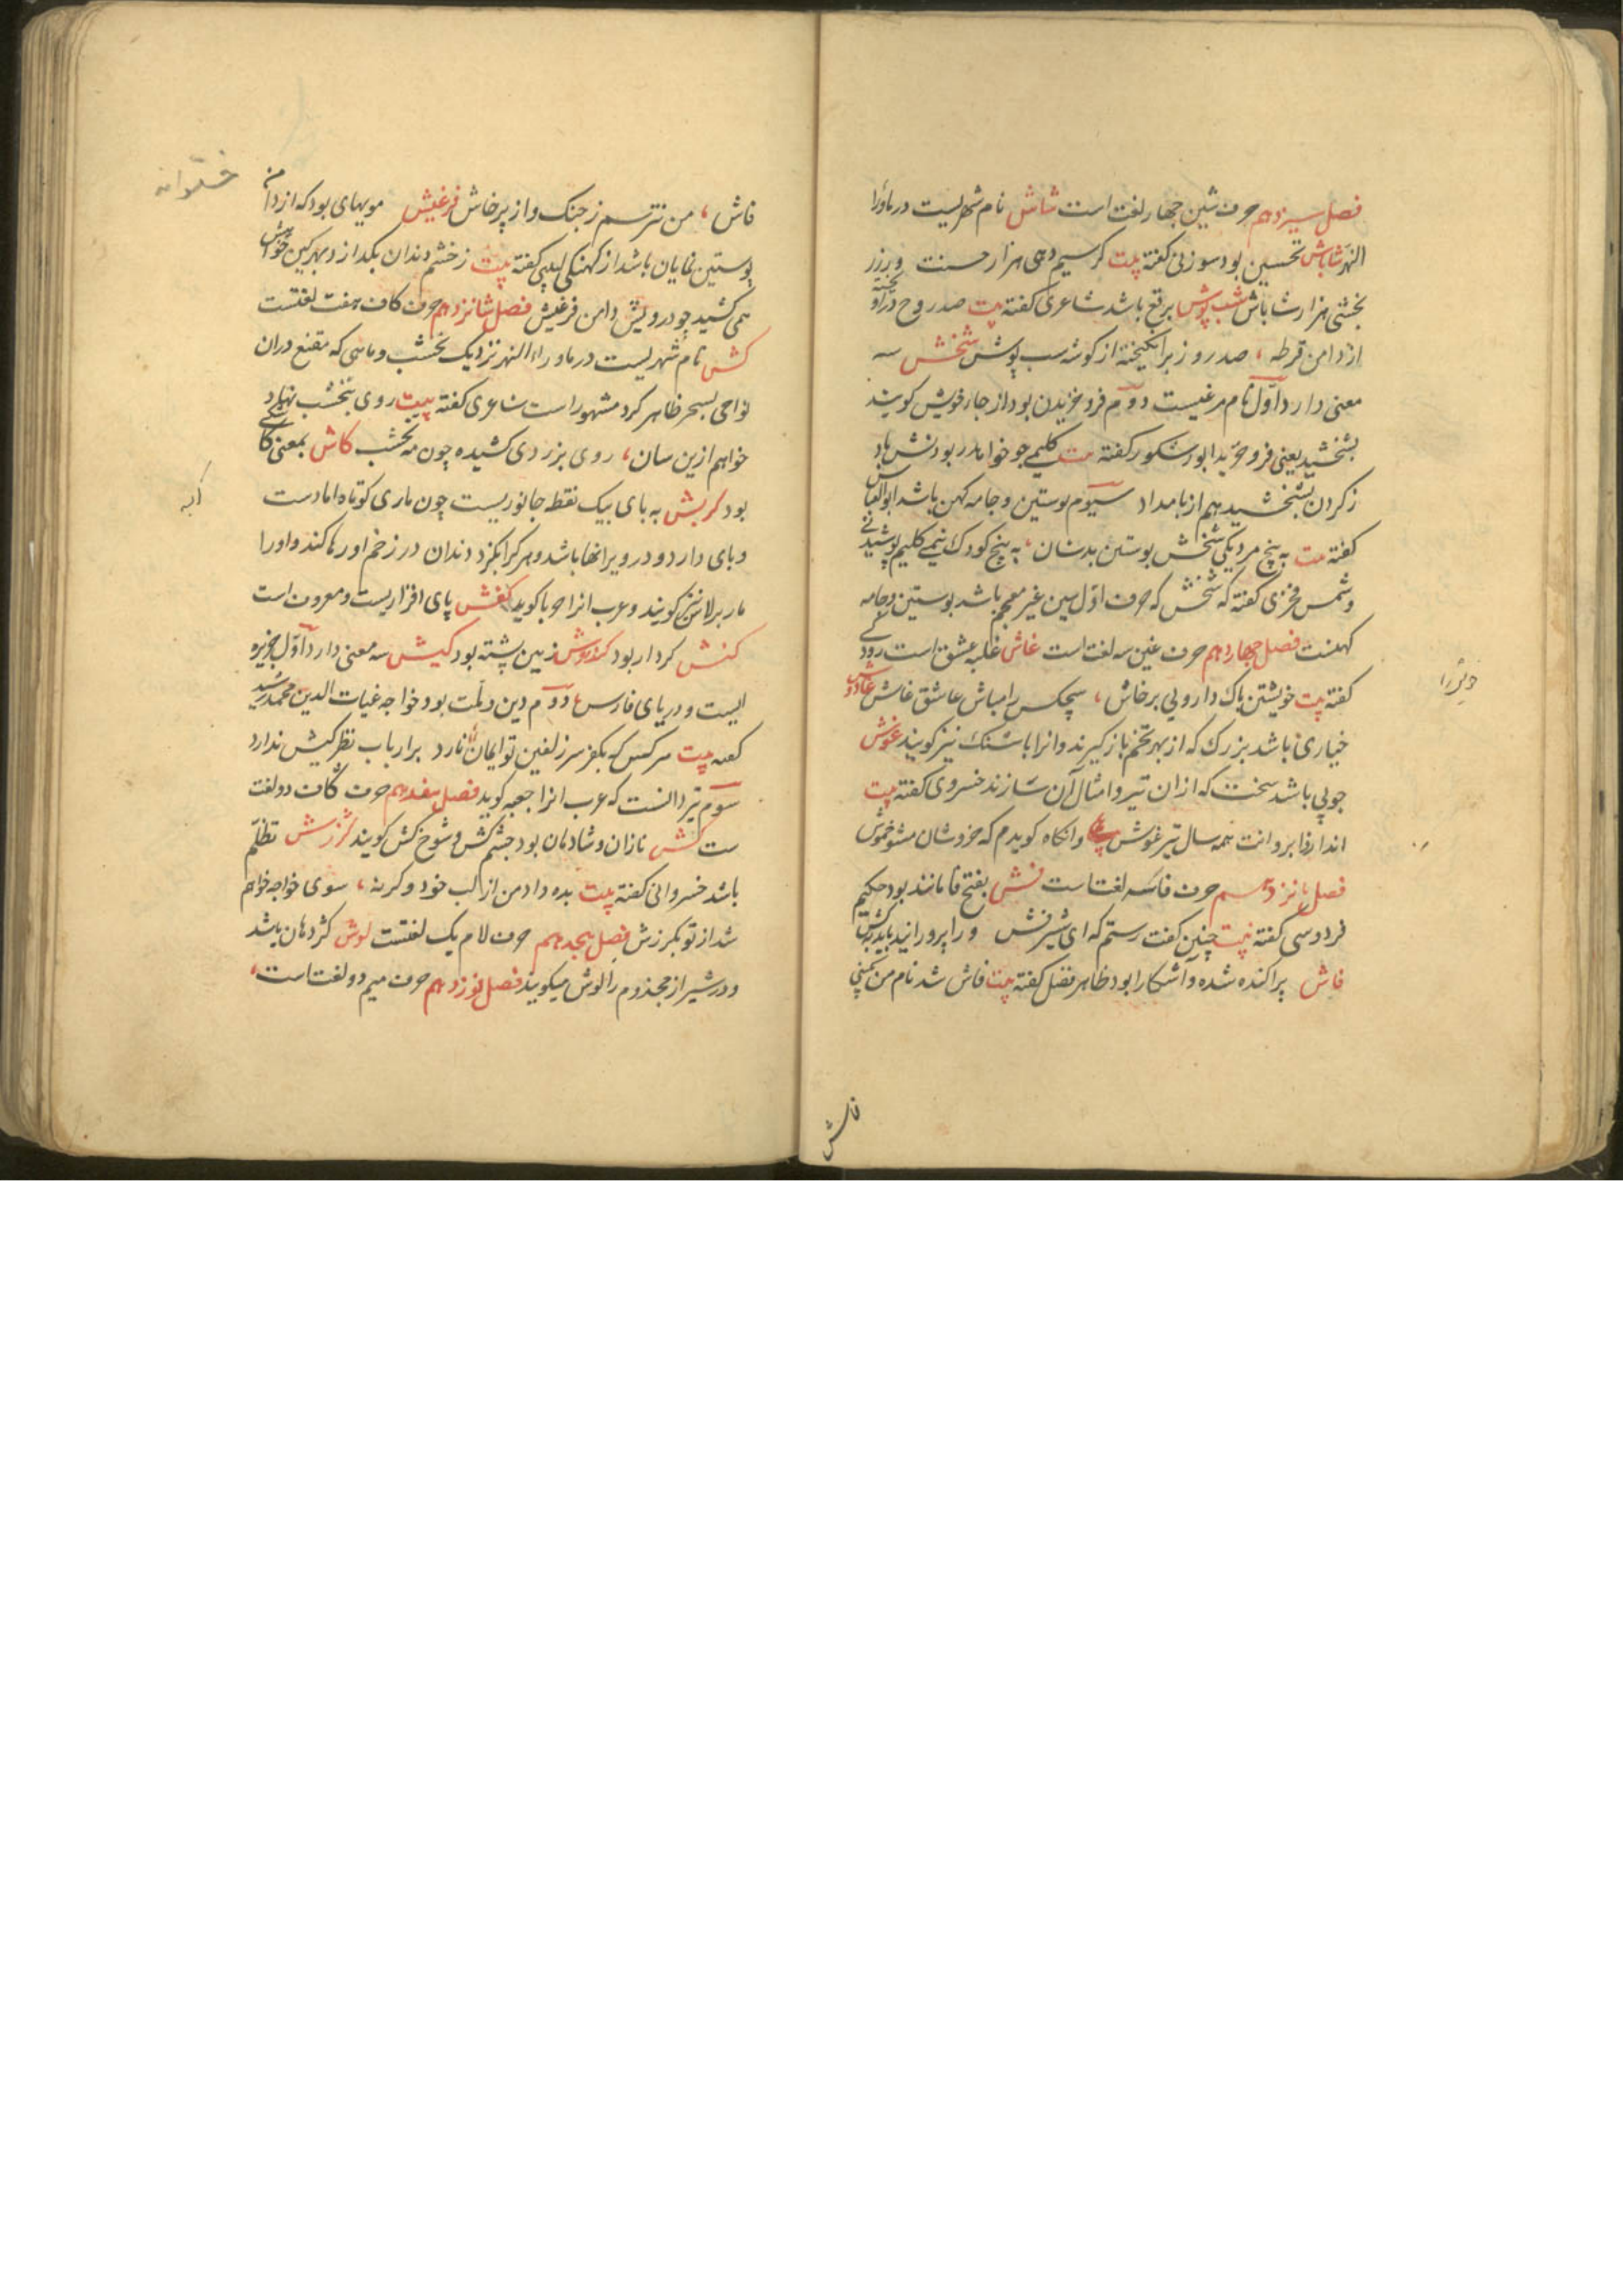 فصل سیزدهم حرف شین چهار لغت است شاش نام شهریست در ماورا
النهر شاباش تحسین بود سوزنی گفته بیت گر سیم دهی هزار حسنت و زر زر
بخشی هزار شاباش شب پوش برقع باشد شاعری گفته بیت صد روح درآویخته
از دامن قرطه ، صد روز برانگیخته از گوشه شب پوش شخش سه
معنی دارد اول نام مرغیست دوم فرو خزیدن بود از جاء خویش گویند
بشخشید یعنی فرو خزید ابو شکور گفته بیت گلیمی جو خواهد ربودنش باد
ز گردن بشخشید هم از بامداد سیوم پوستین و جامه کهن باشد ابو العباس
گفته بیت به پنج مرد یکی شخش پوستین بدشان ، به پنج کودک نیمی گلیم پوشیدنی
و شمس فخری گفته که شخش که حرف اول سین غیر معجم باشد پوستین و جامه
کهنست فصل چهاردهم حرف غین سه لغت است غاش غلبه عشق است رودکی
گفته بیت خویشتن پاک دار و بی پرخاش ، هیچکس را مباش عاشق غاش غاوش
خیاری باشد بزرگ که از بهر تخم بازگیرند و انرا باشنک نیز گویند غوش
چوبی باشد سخت که ازان تیر و امثال آن سازند خسروی گفته بیت
اندازد ابروانت همه سال تیر غوش وانگاه گویدم که خروشان مشو خموش
فصل پانزدهم حرف فا سه لغت است فش بفتح فا مانند بود حکیم
فردوسی گفته بیت چنین گفت رستم که ای شیر فش ورا پرورانید باید بکش
فاش پراکنده شده و آشکارا بود طاهر فضل گفته بیت فاش شد نام من بگیتی
فاش
فاش ، من نترسم ز جنگ و از پرخاش فرغیش مویهای بود که از دامن
پوستین نمایان باشد از کهنگی لبیبی گفته بیت ز خشم دندان بگذارد بهر کین خواهش
همی کشید چو درویش دامن فرغیش فصل شانزدهم حرف کاف هفت لغتست
کش نام شهریست در ماوراء النهر نزدیک نخشب و ماهی که مقنع دران
نواحی بسحر ظاهر کرد مشهور است شاعری گفته بیت روی بنخشب نهاده
خواهم ازین سان ، روی بزردی کشیده چون مه نخشب کاش بمعنی کاشکی
بود کربش به بای بیک نقطه جانوریست چون ماری کوتاه اما دست
و پای دارد و در ویرانها باشد و هر کرا بگزد دندان در زخم او رها کند و اورا
مار پلاس نیز گویند و عرب انرا حربا گوید کفش پای افزاریست و معروف است
کنش کردار بود کندوش زمین پشته بود کیش سه معنی دارد اول جزیره
ایست و دریای فارس ، دوم دین و ملت بود خواجه غیاث الدین محمد رشید
گفته بیت هر کس که بکفر سر زلفین تو ایمان نارد بر ارباب نظر کیش ندارد
سوم تیردانست که عرب انرا جعبه گوید فصل هفدهم حرف گاف دو لغت
ست گش نازان و شادمان بود چشم گش و شوخ گش گویند گرزش تظلم
باشد خسروانی گفته بیت بده داد من از لب خود وگرنه ، سوی خواجه خواهم
شد از تو بگرزش فصل هجدهم حرف لام یک لغتست لوش کژ دهان باشد
و در شیراز مجذوم را لوش میگویند فصل نوزدهم حرف میم دو لغت است ،